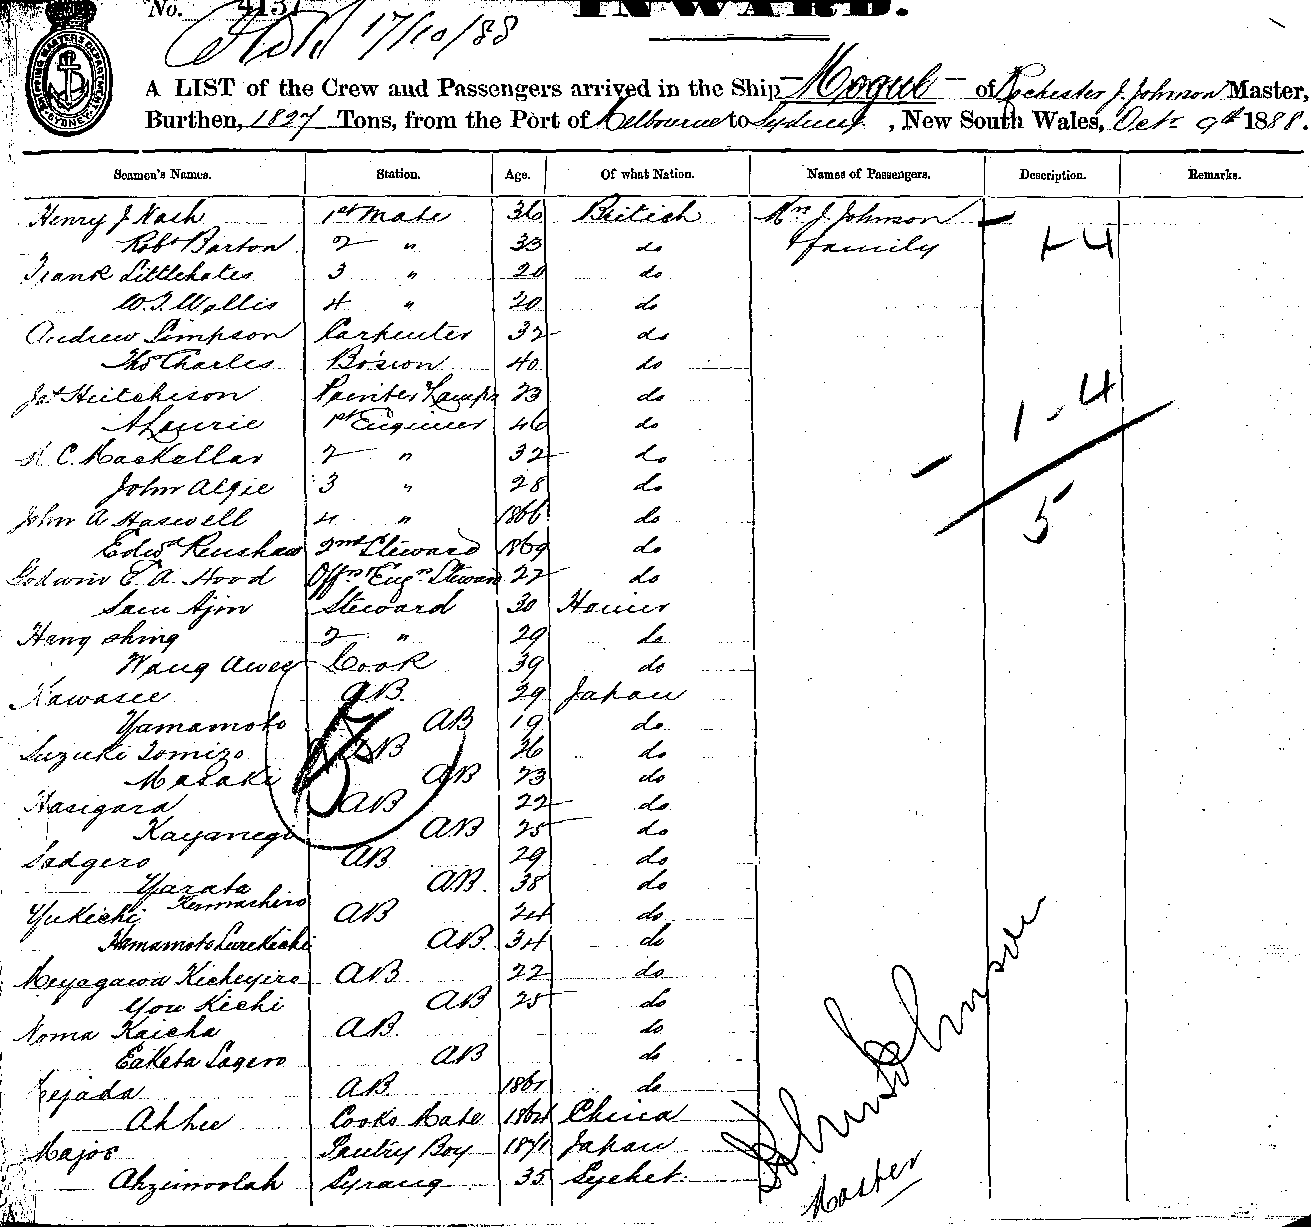 No. 4151 INWARD.
17/10/88
A LIST of the Crew and Passengers arrived in the Ship Mogul of Rochester J. Johnson Master,
Burthen, 1827 Tons, from the Port of Melbourne to Sydney, New South Wales, Octr 9th 1888.
Seamen's Names. Station. Age. Of what Nation. Names of Passengers. Description. Remarks.
Henry J Nash 1st Mate 36 British Mrs J. Johnson
Robt Barton 2 " 33 do family 1-4
Frank Littlehales 3 " 20 do
W. T. Wallis 4 " 20 do
Andrew Simpson Carpenter 32 do
Thos Charles Bo'son 40 do
Jas Hutchison Painter & Lamps 23 do 1-4
A Laurie 1st Engineer 46 do
C. MacKellar 2 " 32 do
John Algie 3 " 28 do 5
John A Haswell 4 " 1866 do
Edwd Renshaw 2nd Steward 1869 do
Godwin E. A. Hood Offrs & Engrs Steward 22 do
Sam Ajon Steward 30
Hang Shing 2 " 29 do
Wang Awee Cook 39 do
Nawasee AB 29 Japan
Yamamoto AB 19 do
Suzuki Tomizo AB 26 do
Masaki AB 23 do
Hasigara AB 22 do
Kayanegi AB 25 do
Sadgero AB 29 do
Yarata AB 38 do
Yukichi Kenmachiro AB 24 do
Hamamoto Surekichi AB 34 do
Meyagawa Kicheyiro AB 22 do
You Kechi AB 25 do
Noma Kaicha AB do
Eaketa Sagero AB do
Tejada AB 1861 do
Ahhee Cooks Mate 1864 China
Major Pantry Boy 1871 Japan
Ahzimoolah Syrang 35 Sychet
John Johnson
Master